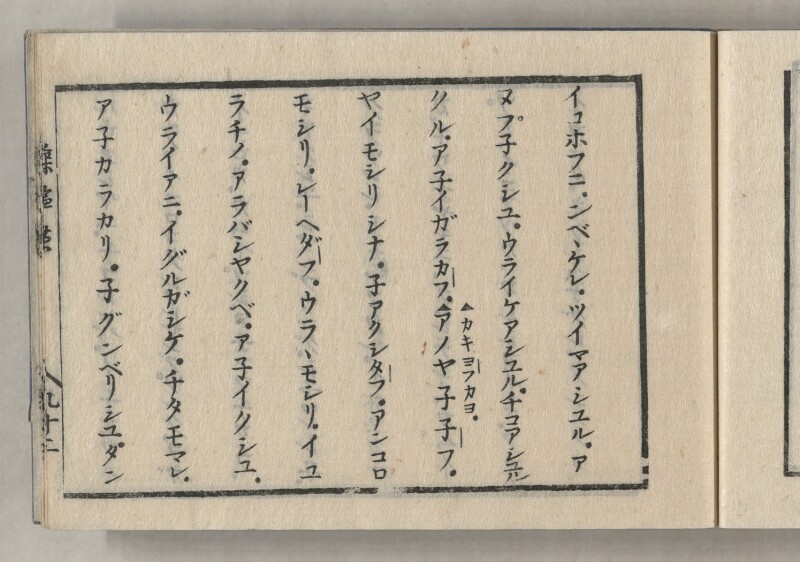 イコホフニ。ンベヽケレ。ツイマアシユル。ア
ヌプ子クシユ。ウライケアシユル。チコアシユル
クル。ア子イガラカフ。▲アノヤ子子フ。
▲カキヨフカヨ。
ヤイモシリシナ。子アクシタフ。アンコロ
モシリ。レーヘダフ。ウラヽモシリ。イユ
ラチノ。アラバシヤクベ。ア子イクシユ。
ウライアニ。イグルガシケ。チタモマレ。
ア子カラカリ。子グンベリシユダン
九十二